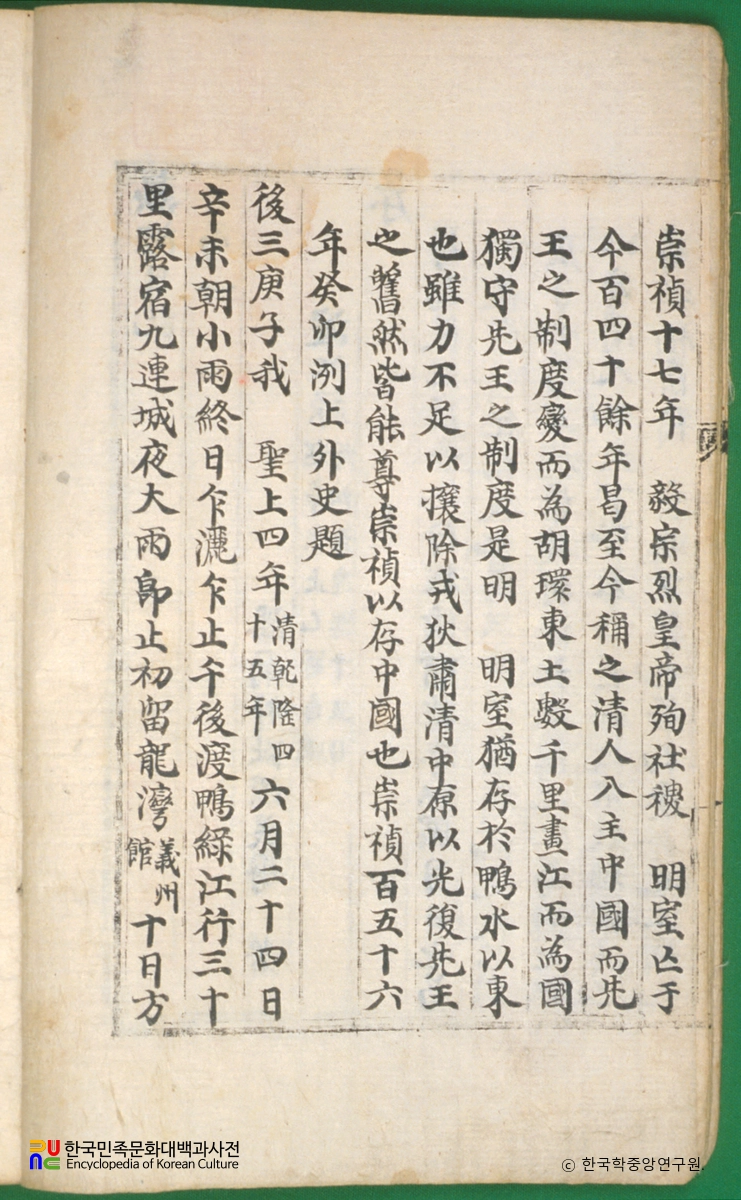 崇禎十七年 毅宗烈皇帝殉社稷 明室亡于
今百四十餘年曷至今稱之清人入主中國而先
王之制度變而為胡環東土數千里畫江而為國
獨守先王之制度是明 明室猶存於鴨水以東
也雖力不足以攘除戎狄肅清中原以光復先王
之舊然皆能尊崇禎以存中國也崇禎百五十六
年癸卯洌上外史題
後三庚子我 聖上四年清乾隆四十五年六月二十四日
辛未朝小雨終日乍灑乍止午後渡鴨綠江行三十
里露宿九連城夜大雨即止初留龍灣義州館十日方
한국민족문화대백과사전
Encyclopedia of Korean Culture
ⓒ 한국학중앙연구원